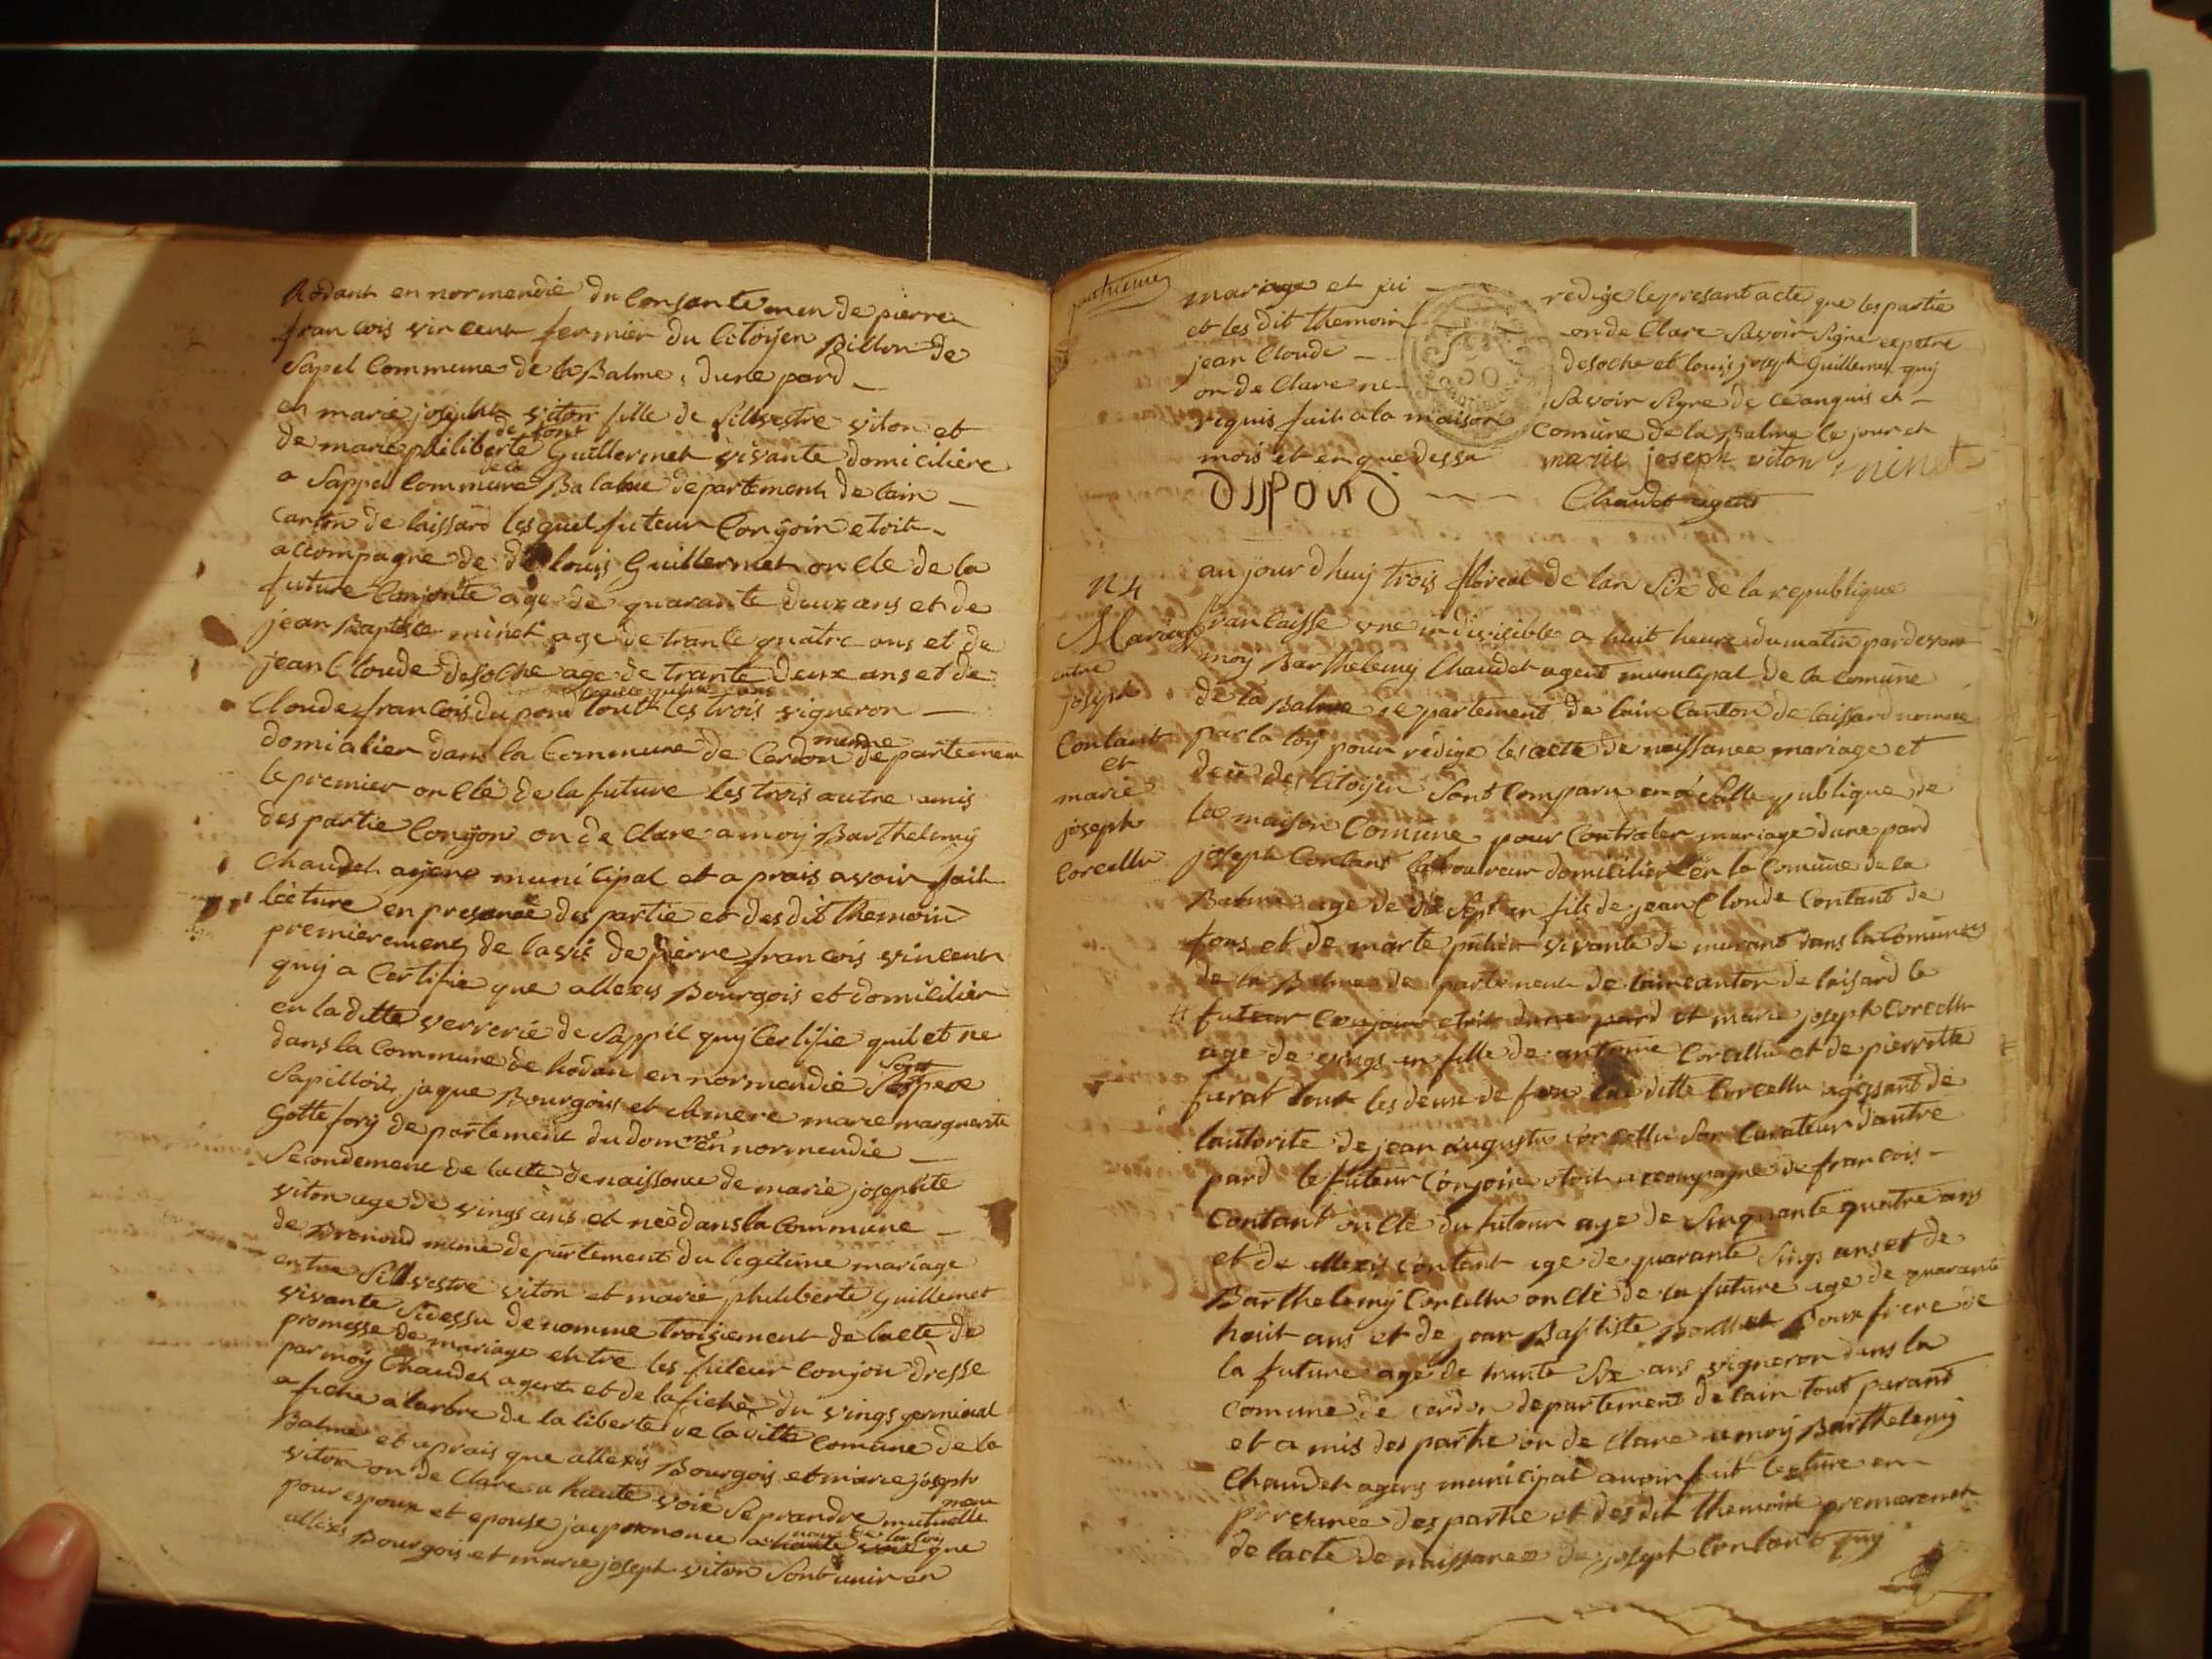 hodant en normendie du Consantemen de pierre
francois vincent fermier du Citoÿen Billon de
Sapel Commune de la Balme, dune pard
en marie josephte viton fille de Sillvestre viton et
de font
de marie philiberte Guillermet vivante domiciliere
a Sappel Commune de la Balme departement de lain
canton de laissard lesquel futeur Conjoin etoit
accompagne de louis Guillermet oncle de la
future Conjointe age de quarante deux ans et de
jean Baptiste minet age de trante quatre ans et de
jean Cloude desoche age de trante deux ans et de
Cloude francois du pond tout les trois vigneron
domicilier dans la Commune de Cerdon meme departemen
le premier oncle de la future les trois autre amis
des partie Conjon on de Clare a moÿ Barthelemÿ
Chaudet agent municipal et a prais avoir fait
lecture en presance des partie et des dit themoin
premierement de lavis de pierre francois vincent
quÿ a Certifie que allexis Bourgois et domicilier
en la ditte verrerie de Sappel quÿ Certifie quil et ne
dans la Commune de hodan en normendie
jaque Bourgois et mere marie marguerite
Gotte forÿ de partement du dom en normendie
Secondement de lacte de naissance de marie josephte
viton age de vings ans et neé dans la Commune
de Brenoud meme departement du legitime mariage
entre Sillvestre viton et marie philiberte Guillermet
vivante Sidessu denomme troisiement de lacte de
promesse de mariage entre les futeur conjon dresse
par moÿ Chaudet agent et de lafiche du vings germinal
afiche a larbre de la liberte de la ditte comune de la
Balme et aprais que allexis Bourgois et marie joseph
viton on de Clare a haute voie Se prandre mutuelle men
pour espoux et epouse jay prononce au nom de la loy que
allexis Bourgois et marie joseph viton Sont unir en
mariage et jai redige le presant acte que les partie
et les dit themoin on de Clare Savoir Signe
jean Cloude desoche et louis joseph Guillermet quÿ
on de Clare ne Savoir Signe de ce anquis et
requis fait a la maison Comune de la Balme le jour et
mois et en que dessu marie joseph viton minet
duponD Chaudet agent
N 4
aujourdhuÿ trois floreal de lan Six de la republique
Mariage
francaisse une indivisible a huit heure du matin par devan
entre
moÿ Barthelemÿ Chaudet agent municipal de la Comune
joseph
de la Balme departement de lain Canton de laissard nomme
Contant
par la loÿ pour redige les acte de naissance mariage et
et
marie
des Citoÿen Sont Comparu en Salle publique de
joseph
la maison Comune pour Contrater mariage dune pard
Corcellu
joseph Contant laboureur domicilier en la Comune de la
Balme age de dix Sept an fils de jean Cloude Contant de
fons et de marte vivante de murant dans la Comune
de la Balme de partement de lain canton de laisard le
futeur Conjoin etoit dune pard et marie joseph Corcellu
age de vings un fille de antoine Corcellu et de pierrette
furat tout les deux de la ditte Corcellu agissant de
lautorite de jean augustin Corcellu Son Curateur dautre
pard le futeur Conjoin etoit accompagne de francois
Contant oncle du futeur age de Sinquante quatre ans
et de allexis Contant age de quarante Sings ans et de
Barthelemÿ Corcellu oncle de la future age de quarante
houit ans et de jean Baptiste frere de
la future age de trante Six ans vigneron dans la
comune de cerdon departement de lain tout parant
et amis des partie on de Clare a moÿ Barthelemÿ
Chaudet agens municipal avoir fait lecture en
presance des partie et des dit themoin premierement
de lacte de naissance de joseph Contant quÿ